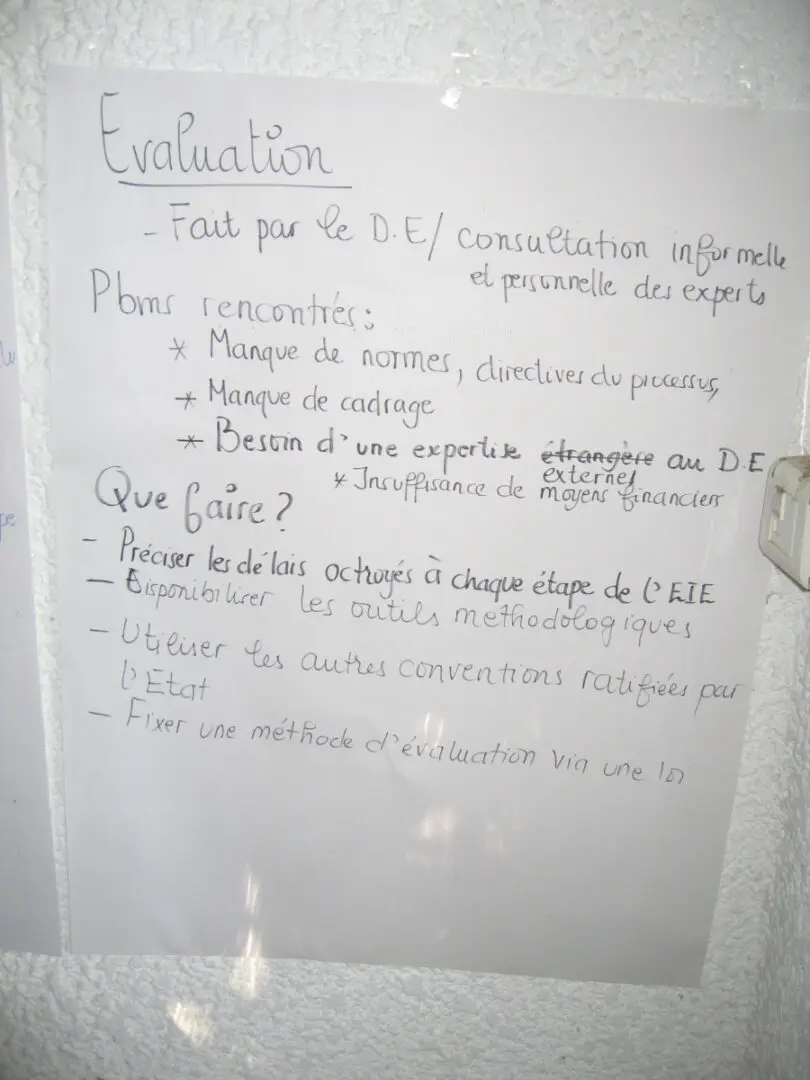 Evaluation
- Fait par le D.E/ consultation informelle
et personnelle des experts
Pbms rencontrés:
* Manque de normes, directives du processus,
* Manque de cadrage
* Besoin d'une expertise étrangère au D.E
externe,
* Insuffisance de moyens financiers
Que faire?
- Préciser les délais octroyés à chaque étape de l'EIE
- Disponibiliser les outils methodologiques
- Utiliser les autres conventions ratifiées par
l'Etat
- Fixer une méthode d'évaluation via une loi